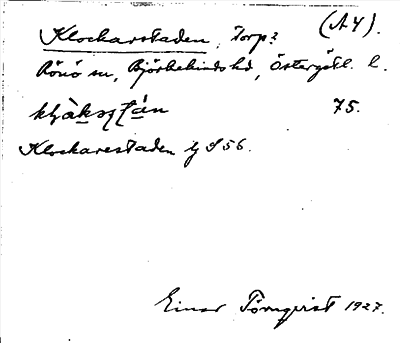 Klockarstaden, Torp? (A4).
Rönö sn, Björkekinds hd, Östergötl. l.
75.
Klockarestaden J S56.
Einar Törnqvist 1927.